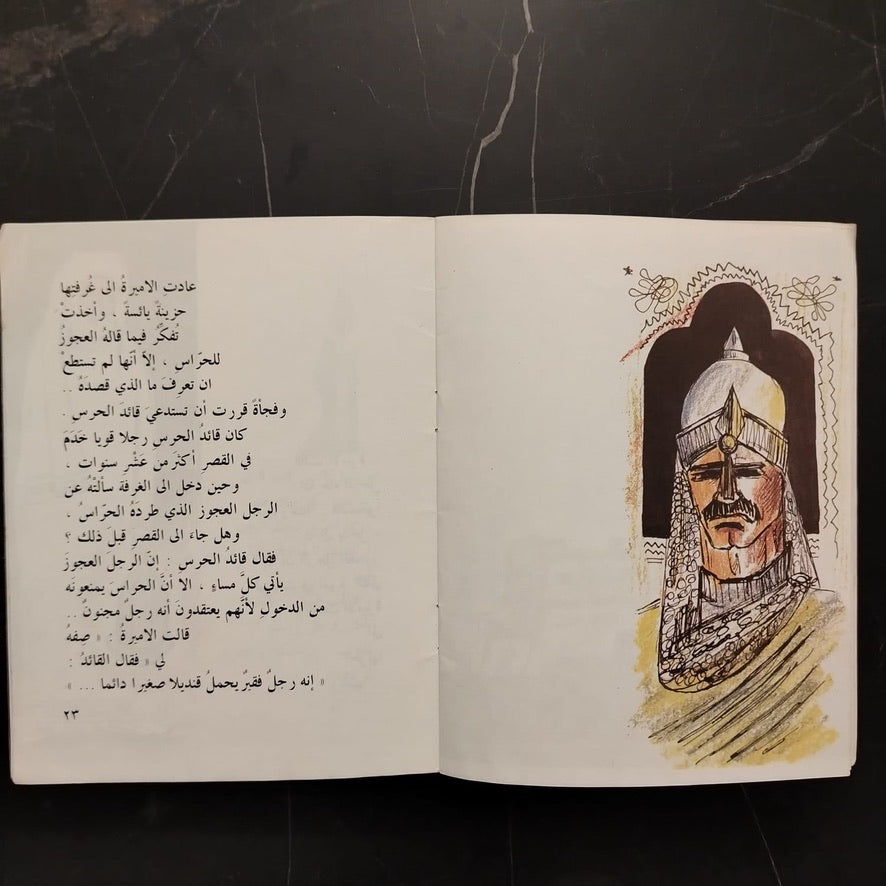 عادتِ الاميرةُ الى غُرفتِها
حزينةً يائسةً ، وأخذتْ
تُفكِّرُ فيما قالهُ العجوزُ
للحرّاسِ ، إلاَّ أنّها لم تستطعْ
ان تعرفَ ما الذي قصدَهُ ..
وفجأةً قررت أن تستدعيَ قائد الحرسِ .
كان قائدُ الحرسِ رجلا قويا خَدَمَ
في القصر أكثرَ من عَشْرِ سنوات ،
وحين دخل الى الغرفة سألتْهُ عن
الرجل العجوز الذي طردَهُ الحرّاسُ ،
وهل جاءَ الى القصرِ قبلَ ذلك ؟
فقال قائدُ الحرس : إنّ الرجلَ العجوزَ
يأتي كلَّ مساءٍ ، الا أنَّ الحراسَ يمنعونَه
من الدخولِ لأنَّهم يعتقدونَ أنه رجلٌ مجنونٌ ..
قالت الاميرةُ : « صِفهُ
لي » فقال القائدُ :
« إنه رجلٌ فقيرٌ يحملُ قنديلا صغيرا دائما ... »
٢٣